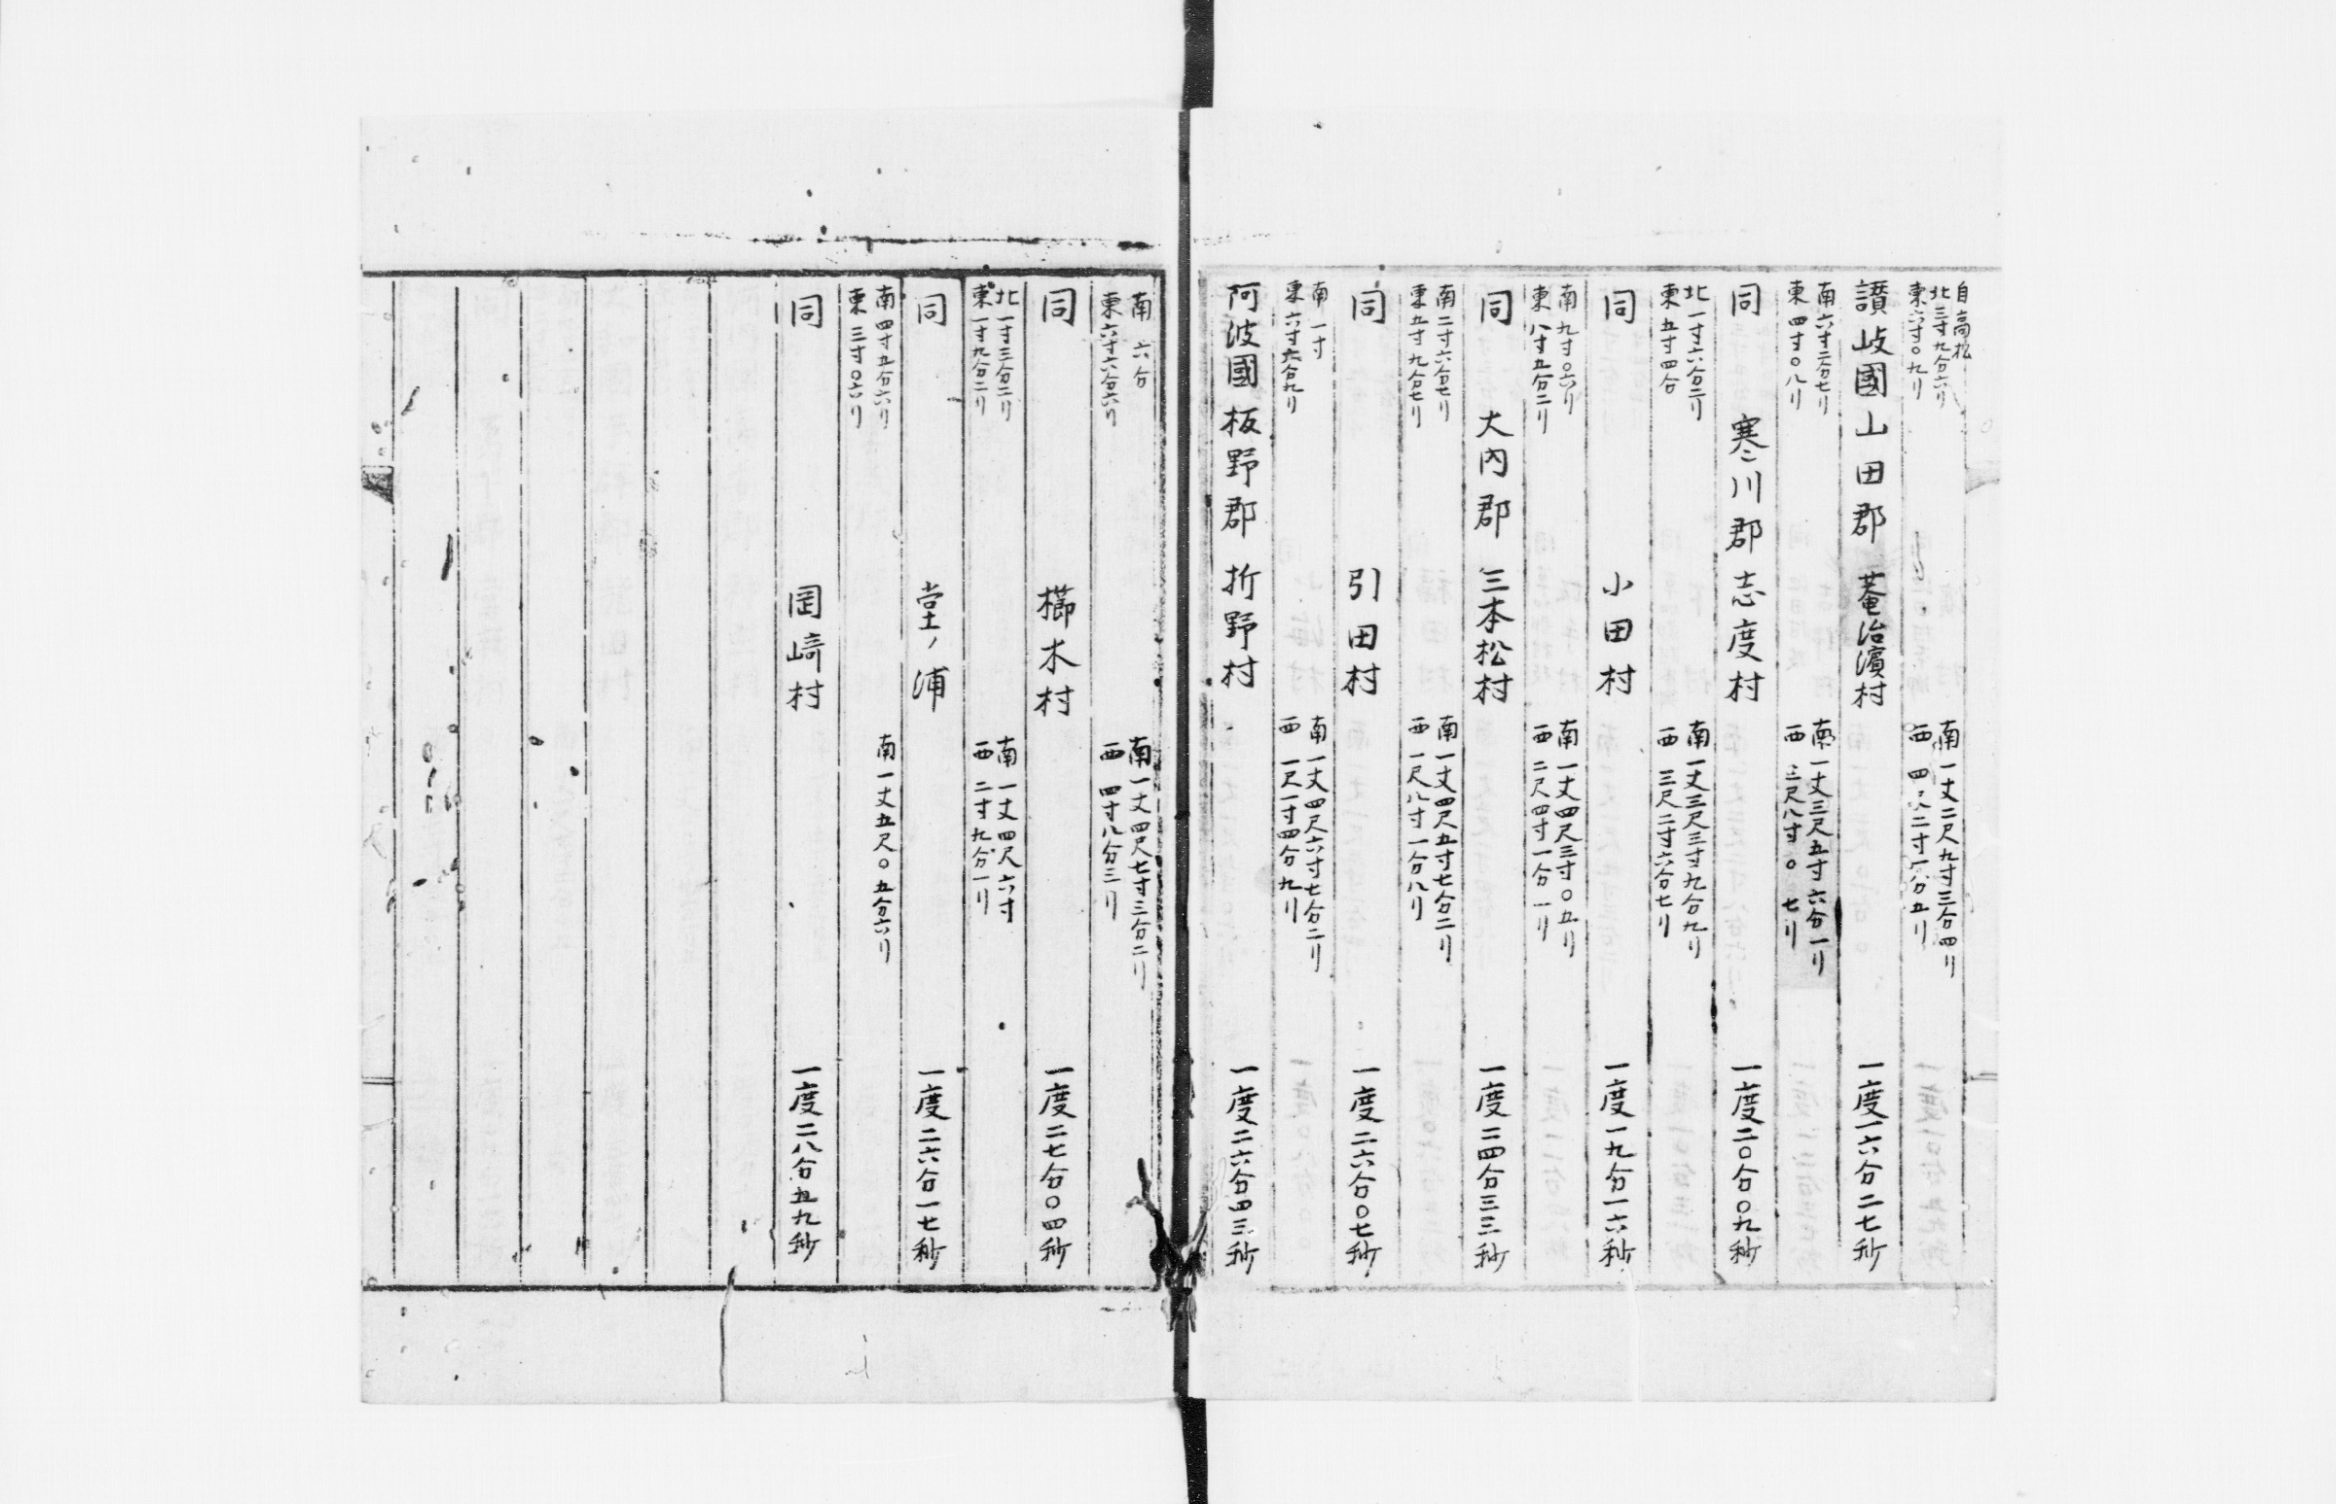 自高松
北三寸九分六リ
東六寸〇九リ
南一丈二尺九寸三分四リ
西四尺二寸一分五リ
讃岐國山田郡 菴治濱村 一度一六分二七秒
南六寸二分七リ
東四寸〇八リ
南一丈三尺五寸六分一リ
西三尺八寸〇七リ
同 寒川郡 志度村 一度二〇分〇九秒
北一寸六分二リ
東五寸四分
南一丈三尺三寸九分九リ
西三尺二寸六分七リ
同 小田村 一度一九分一六秒
南九寸〇六リ
東八寸五分二リ
南一丈四尺三寸〇五リ
西二尺四寸一分一リ
同 大内郡 三本松村 一度二四分三三秒
南二寸六分七リ
東五寸九分七リ
南一丈四尺五寸七分二リ
西一尺八寸一分八リ
同 引田村 一度二六分〇七秒
南一寸
東六寸六分九リ
南一丈四尺六寸七分二リ
西一尺一寸四分九リ
阿波國 板野郡 折野村 一度二六分四三秒
南六分
東六寸六分六リ
南一丈四尺七寸三分二リ
西四寸八分三リ
同 櫛木村 一度二七分〇四秒
北一寸三分二リ
東一寸九分二リ
南一丈四尺六寸
西二寸九分一リ
同 堂ノ浦 一度二六分一七秒
南四寸五分六リ
東三寸〇六リ
南一丈五尺〇五分六リ
同 岡﨑村 一度二八分五九秒